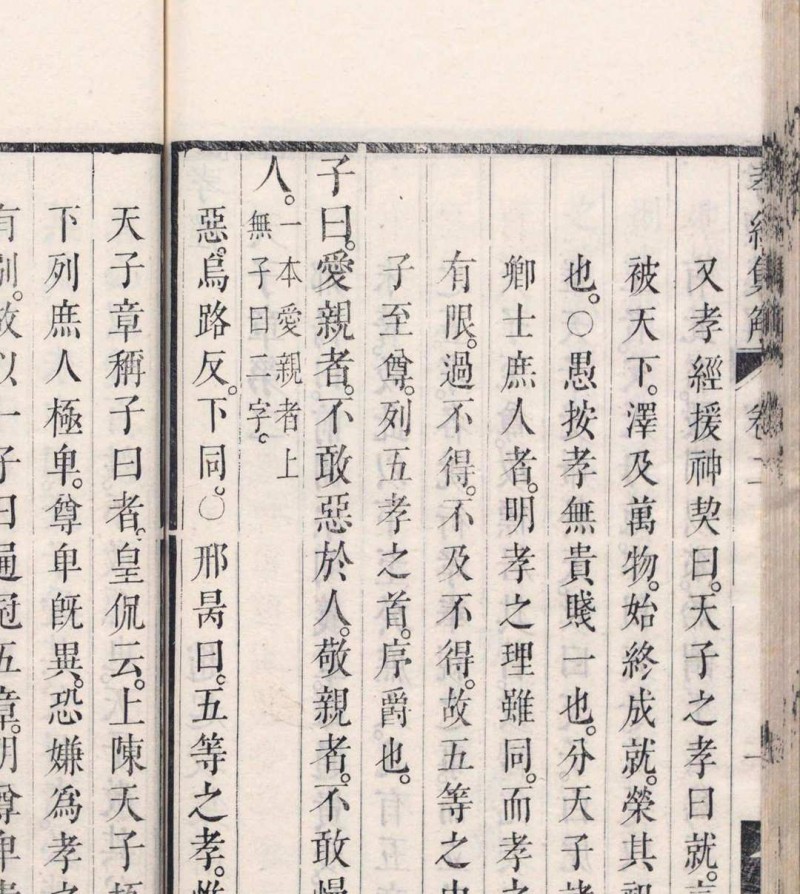 孝經集解 卷一
又孝經援神契曰。天子之孝曰就。言
被天下。澤及萬物。始終成就。榮其祖
也。○愚按孝無貴賤一也。分天子諸
卿士庶人者。明孝之理雖同。而孝之
有限。過不得。不及不得。故五等之中
子至尊。列五孝之首。序爵也。
子曰。愛親者。不敢惡於人。敬親者。不敢慢
人。一本愛親者上
無子曰二字。
惡。烏路反。下同。○邢昺曰。五等之孝。惟
天子章稱子曰者。皇侃云。上陳天子極
下列庶人極卑。尊卑旣異。恐嫌爲孝之
有別。故以一子曰通冠五章。明尊卑